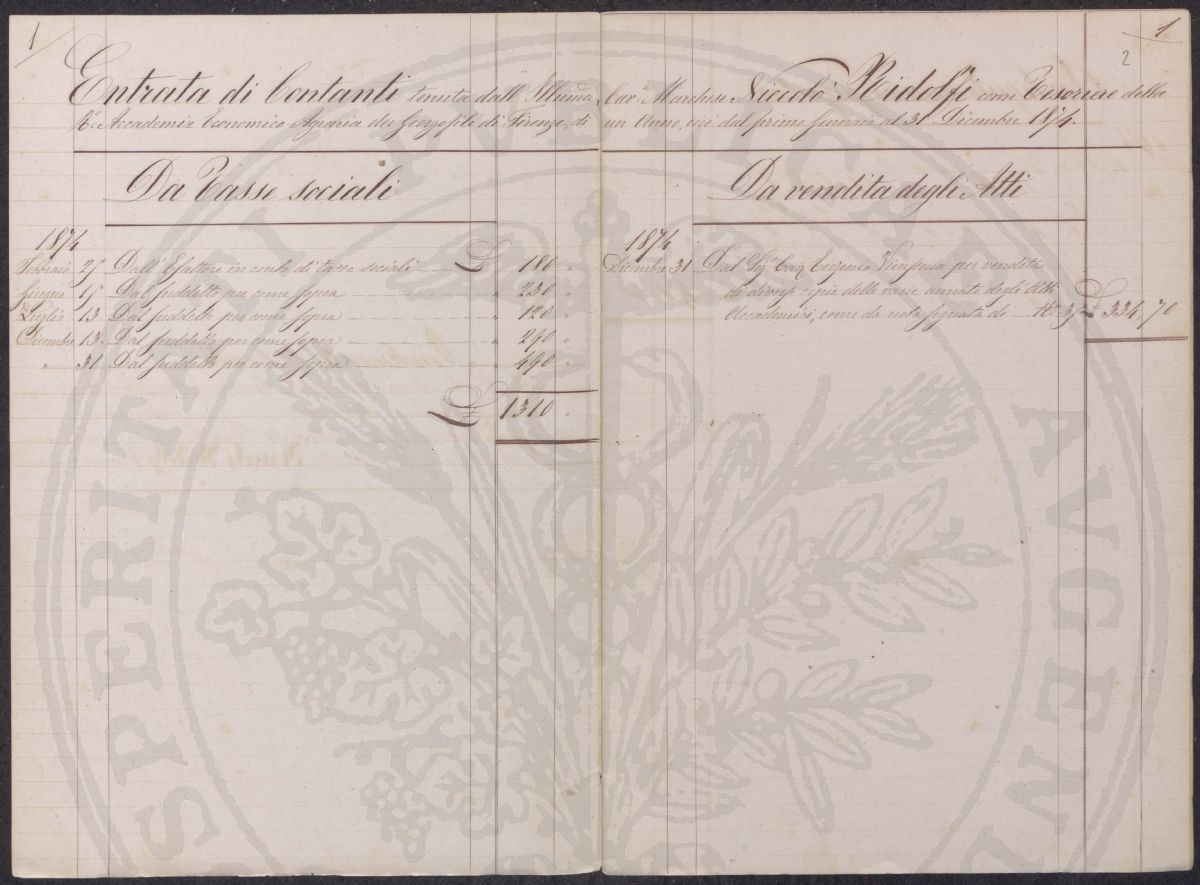 1
1
2
Entrata di Contanti tenuta dall' Illumo. Cav.e Marchese Niccolò Ridolfi come Tesoriere della
R.e Accademia Economico Agraria dei Georgofili di Firenze, di un Anno, cioè dal primo Gennaio al 31 Dicembre 1874.
Da Tasse sociali
1874
Febbraio 27 Dall' Esattore in conto di tasse sociali £ 180 "
Giugno 15 Dal suddetto per come sopra " 230 "
Luglio 13 Dal suddetto per come sopra " 120 "
Dicembre 13 Dal suddetto per come sopra " 290 "
" 31 Dal suddetto per come sopra " 490 "
£ 1310 "
Da vendita degli Atti
1874
Dicembre 31 Dal Sig.r Cav. Eugenio Vieusseux per vendita
di diverse copie delle varie annate degli Atti
Accademici, come da nota segnata di £ 334, 70
PERITATI PUBLICAE AUGENDAE